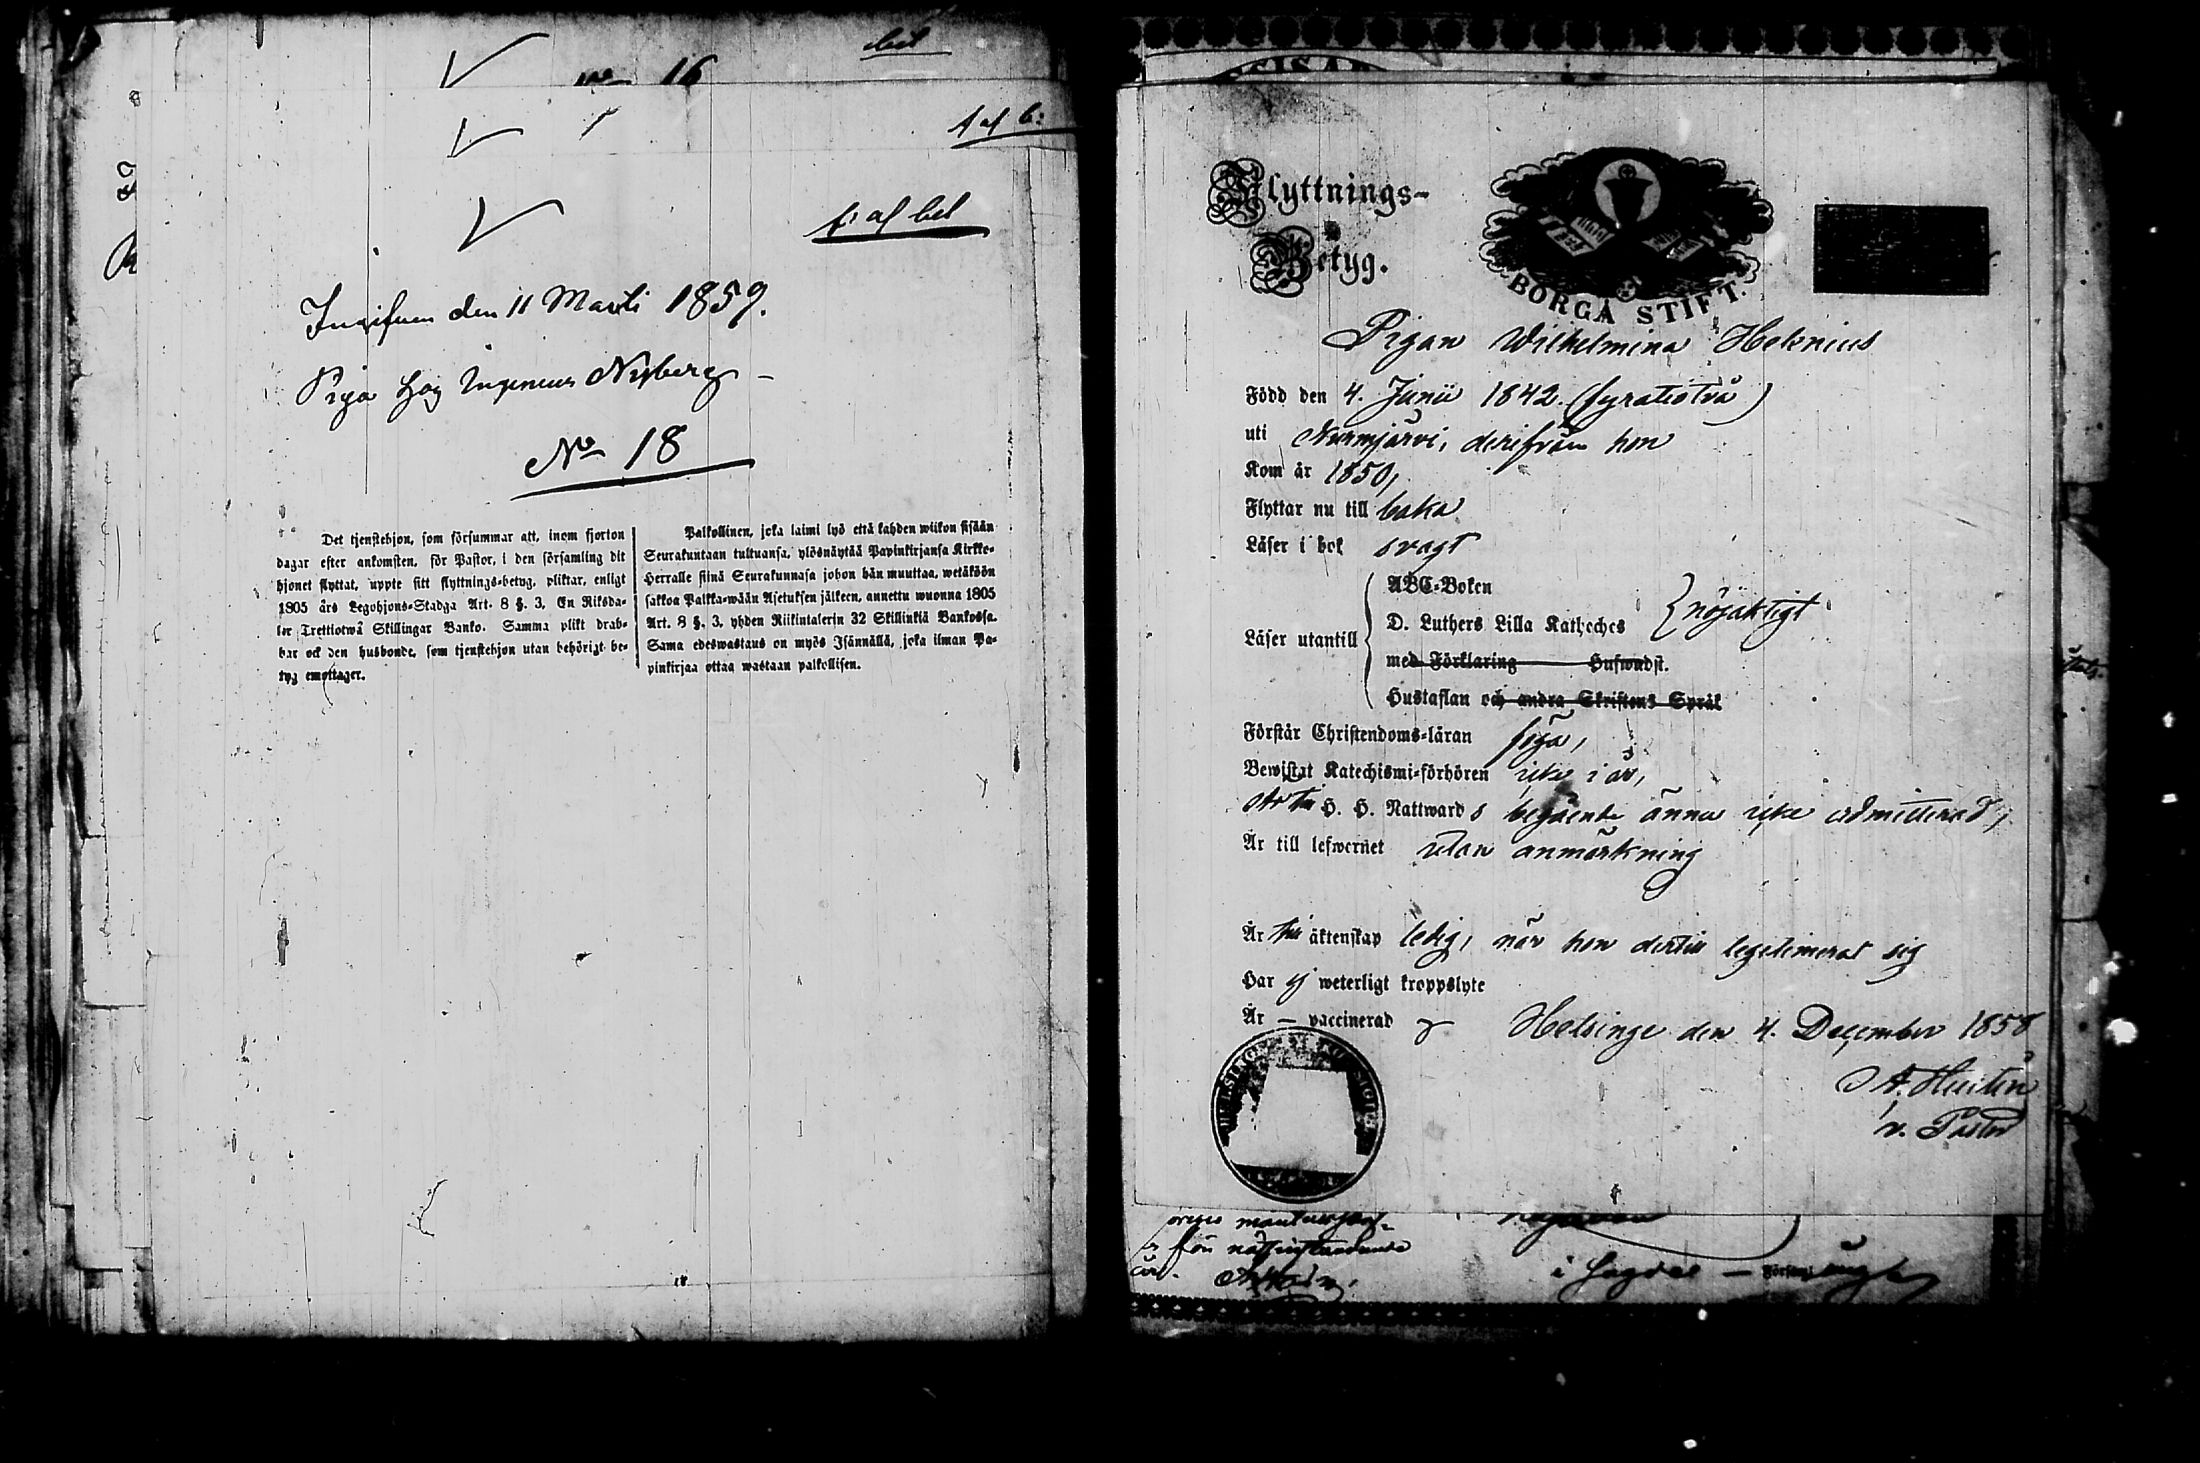 bet
No 16
1 af b:
1 af bet
den 11 Marti 1859.
Piga hos Nyberg
No 18
Det tjenstehjon, som försummar att, inom fjorton
dagar efter ankomsten, för Pastor, i den församling dit
hjonet flyttat, uppte sitt flyttnings-betyg, pliktar, enligt
1805 års Legohjons-Stadga Art. 8 §. 3, En Riksda-
ler Trettiotwå Skillingar Banko. Samma plikt drab-
bar ock den husbonde, som tjenstehjon utan behörigt be-
tyg emottager.
Palkollinen, joka laimi lyö että kahden wiikon sisään
Seurakuntaan tultuansa, ylösnäytää Papinkirjansa Kirkko-
Herralle siinä Seurakunnasa johon hän muuttaa, wetäköön
sakkoa Palkka-wään Asetuksen jälkeen, annettu wuonna 1805
Art. 8 §. 3, yhden Riikintalerin 32 Skillinkiä Bankossa.
Sama edeswastaus on myös Isännällä, joka ilman Pa-
pinkirjaa ottaa wastaan palkollisen.
Flyttnings-
Betyg.
BORGÅ STIFT.
Pigan Wilhelmina Helenius
Född den 4. Junii 1842. (fyratiotvå)
uti Nurmjärvi, derifrån hon
Kom år 1850,
Flyttar nu till baka
Läser i bok svagt
Läser utantill
ABC-Boken
D. Luthers Lilla Katheches
med Förklaring Hufwudst.
Hustaflan och andra Skriftens Språk
nöjaktigt
Förstår Christendoms-läran föga,
Bewistat Katechismi-förhören icke i år,
Är till H. H. Nattwards begående ännu icke admitterad,
Är till lefwernet utan anmärkning
Är till äktenskap ledig, när hon dertill legitimerat sig
Har ej weterligt kroppslyte
Är — vaccinerad
Helsinge den 4. December 1858
v. Pastor
för nästinstundande
år.
i — Förs